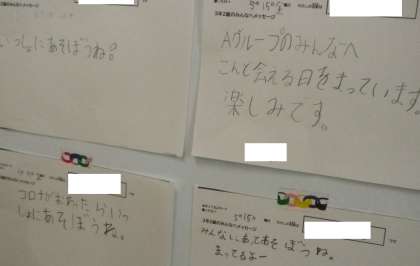 2組のみんなへメッセージ
いっしょにあそぼうね。
5月15日
3年2組のみんなへメッセージ
Aグループのみんなへ
こんど会える日をまっています。
楽しみです。
3年2組のみんなへメッセージ
コロナがおわったらいっ
しょにあそぼうね。
5月15日
3年2組のみんなへメッセージ
みんなにあってあそぼうね。
まってるよー